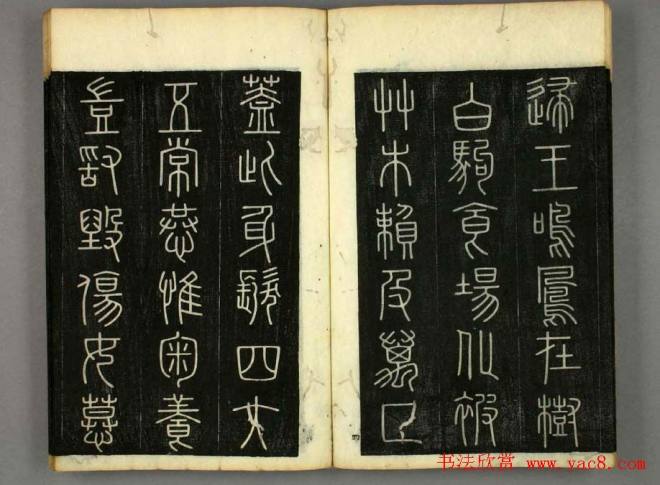 歸王鳴鳳在樹
白駒食場化被
艸木賴及萬方
蓋此身髮四大
五常恭惟鞠養
豈敢毀傷女慕
书法欣赏 www.yac8.com